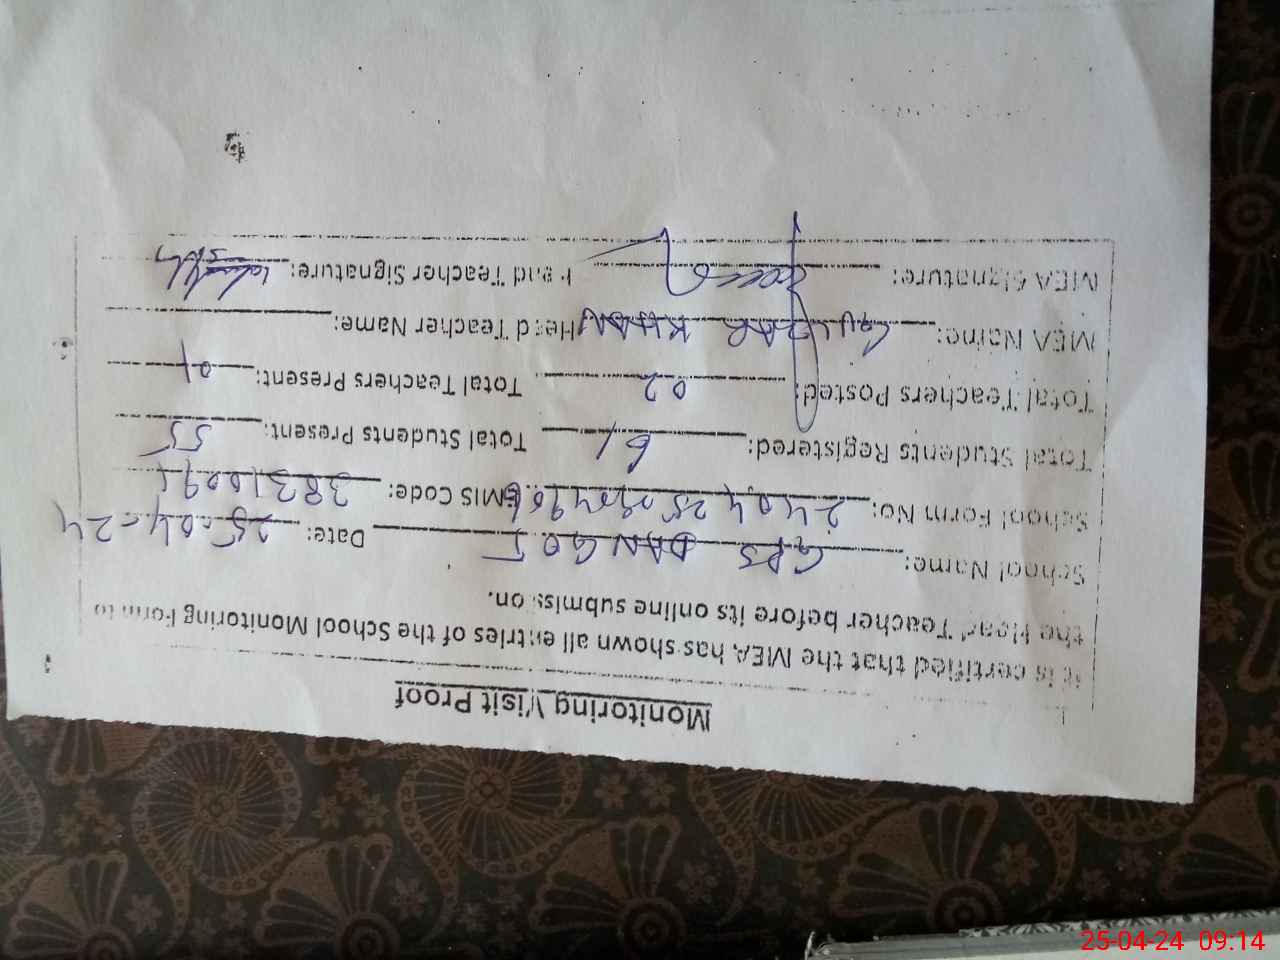 Monitoring Visit Proof
It is certified that the MEA has shown all entries of the School Monitoring Form to
the Head Teacher before its online submission.
School Name: GPS DANGOT Date: 25-04-24
School Form No: EMIS Code:
Total Students Registered: 61 Total Students Present: 55
Total Teachers Posted: 02 Total Teachers Present: 01
MEA Name: GULZAR KHAN Head Teacher Name:
MEA Signature: Head Teacher Signature:
25-04-24 09:14